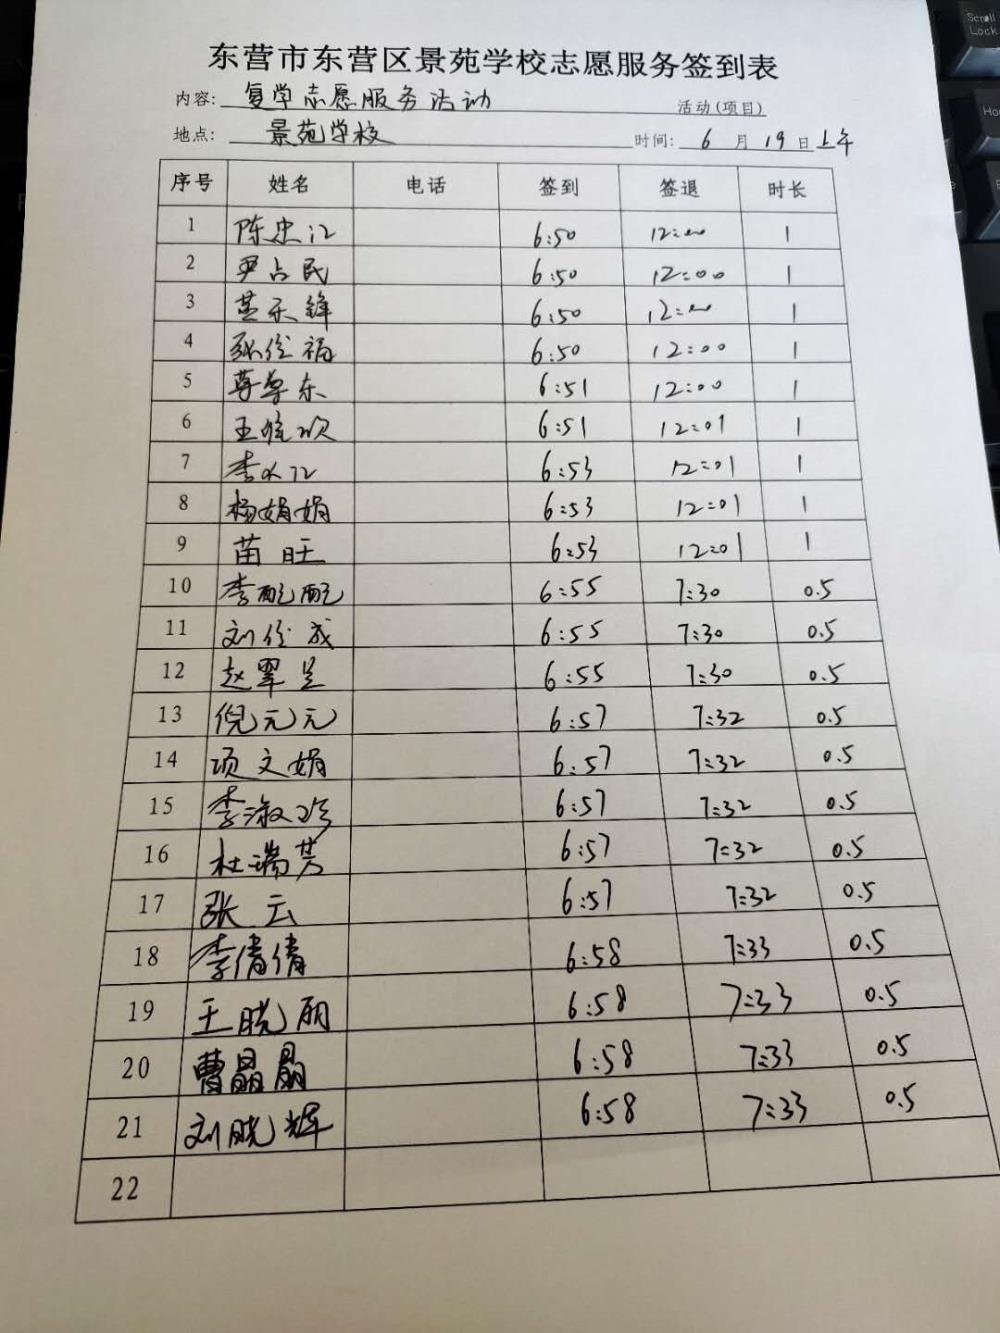 东营市东营区景苑学校志愿服务签到表
内容: 复学志愿服务活动 活动(项目)
地点: 景苑学校 时间: 6 月 19 日 上午
序号 姓名 电话 签到 签退 时长
1 陈忠江 6:50 12:00 1
2 尹占民 6:50 12:00 1
3 6:50 12:00 1
4 张俊福 6:50 12:00 1
5 6:51 12:00 1
6 6:51 12:01 1
7 李水江 6:53 12:01 1
8 杨娟娟 6:53 12:01 1
9 苗旺 6:53 12:01 1
10 6:55 7:30 0.5
11 刘俊成 6:55 7:30 0.5
12 6:55 7:30 0.5
13 倪元元 6:57 7:32 0.5
14 项文娟 6:57 7:32 0.5
15 李淑珍 6:57 7:32 0.5
16 杜瑞芳 6:57 7:32 0.5
17 张云 6:57 7:32 0.5
18 李倩倩 6:58 7:33 0.5
19 王晓丽 6:58 7:33 0.5
20 曹晶晶 6:58 7:33 0.5
21 刘晓辉 6:58 7:33 0.5
22
Scroll
Lock